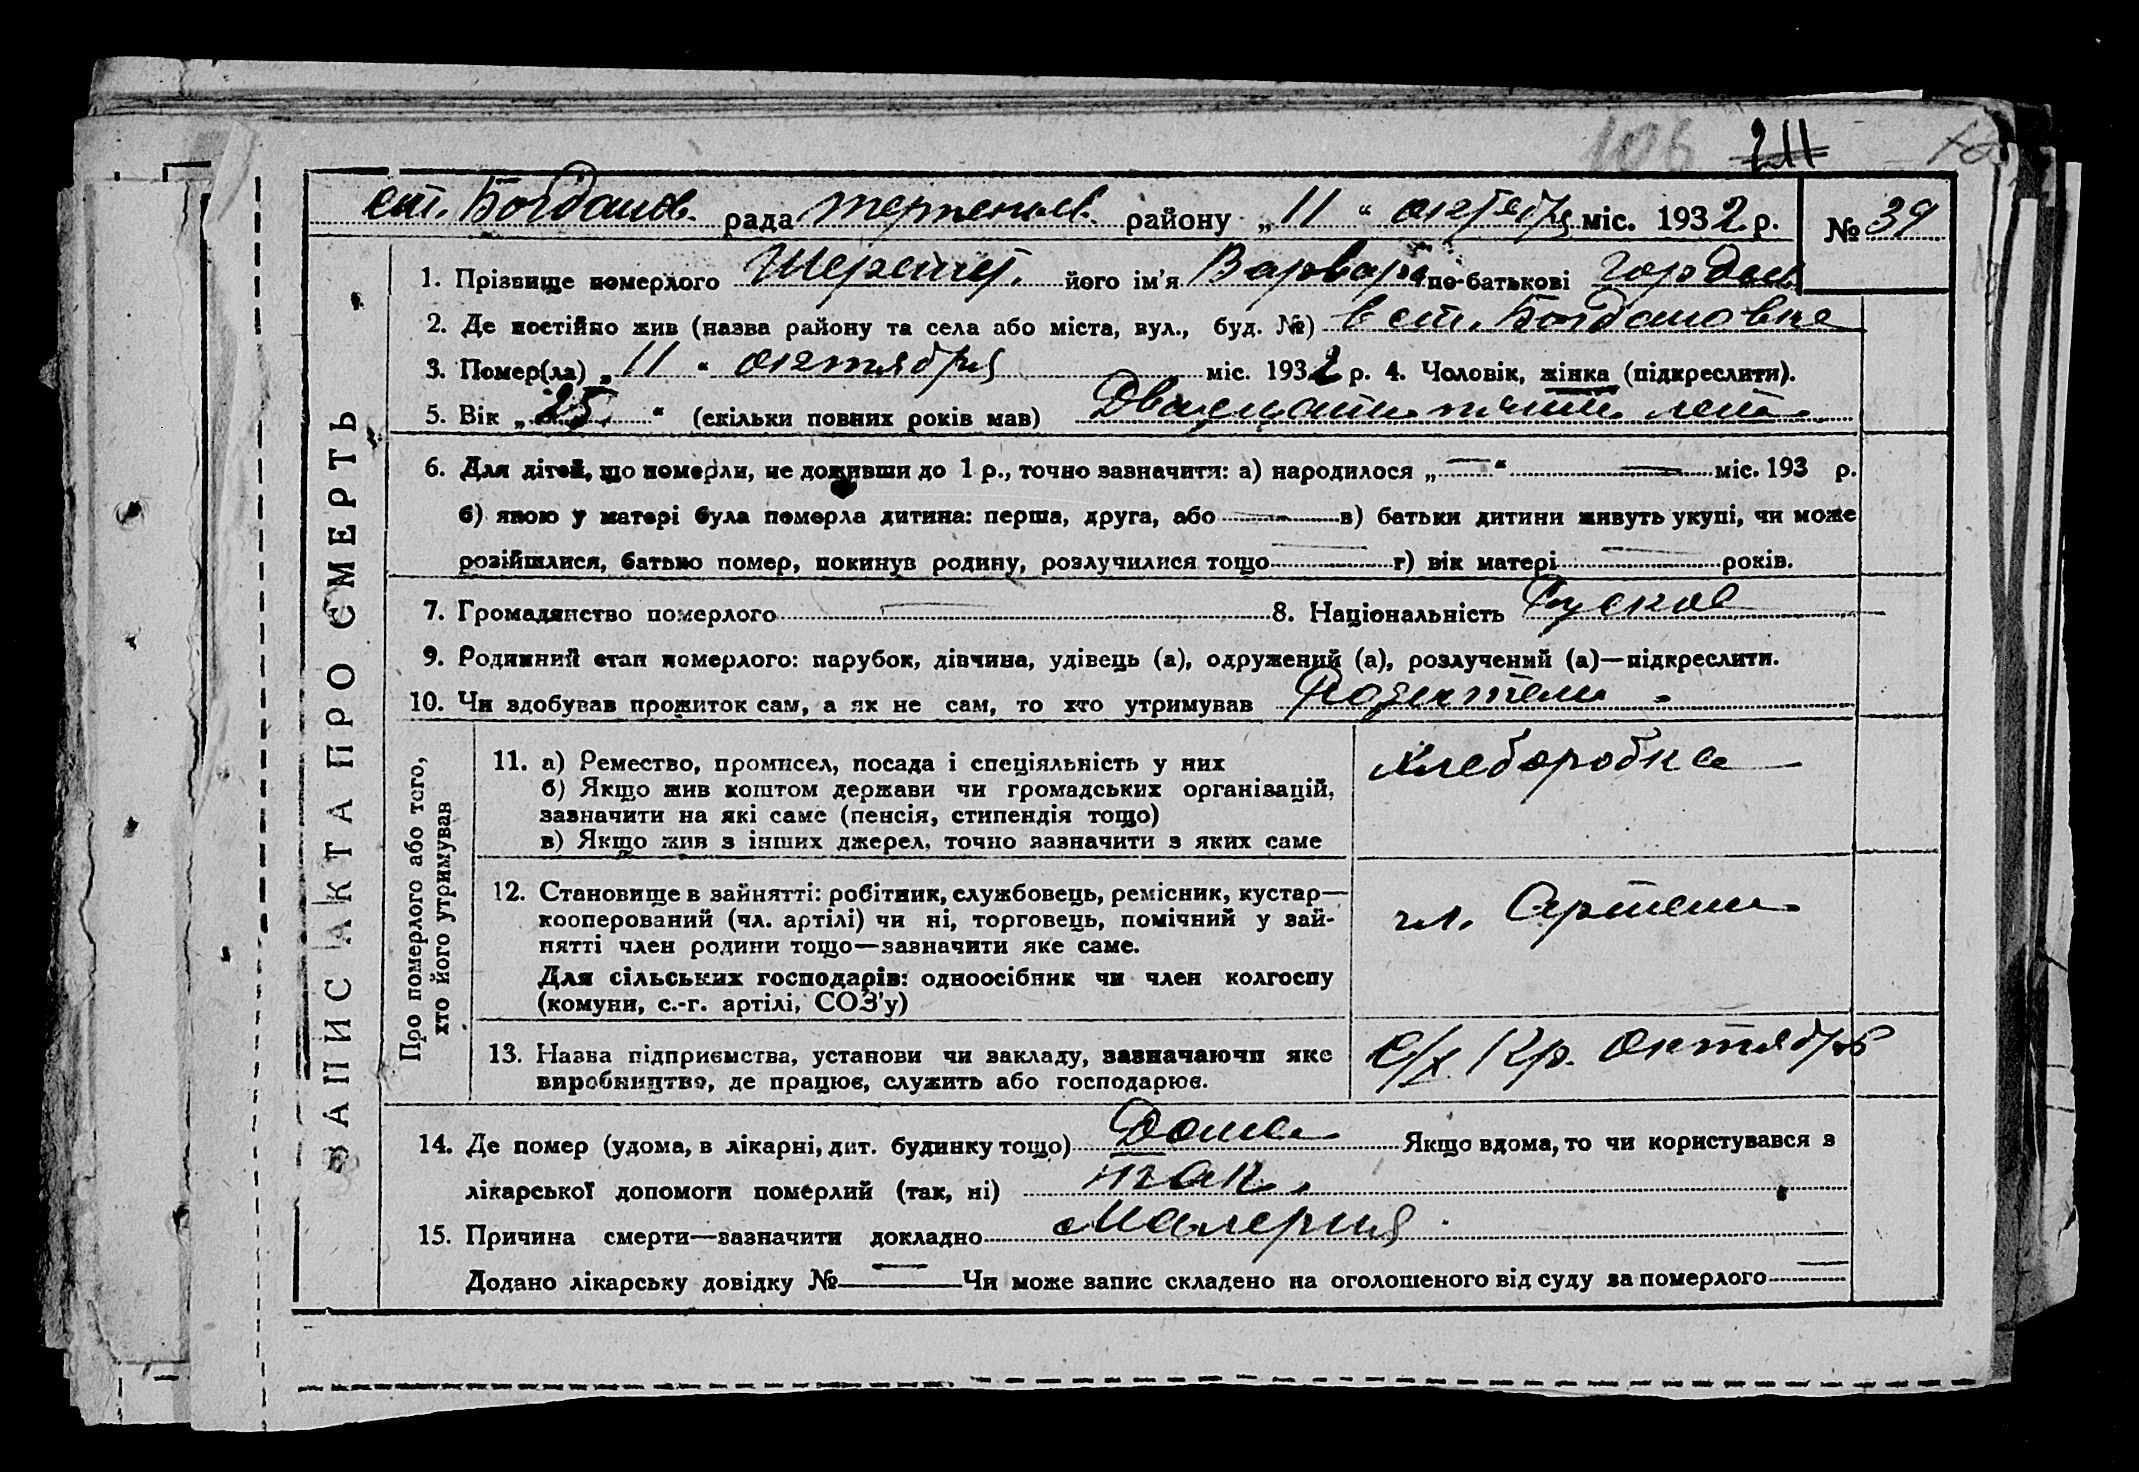 106 211
ст. Богданов. рада Терпеньев. району „11“ октября міс. 1932 р. № 39
1. Прізвище померлого його ім'я Варвара по-батькові Гордеев
2. Де постійно жив (назва району та села або міста, вул., буд. №) в ст. Богдановке
3. Помер(ла) „11“ октября міс. 1932 р. 4. Чоловік, жінка (підкреслити).
5. Вік „25“ (скільки повних років мав) Двадцати пяти лет
6. Для дітей, що померли, не доживши до 1 р., точно зазначити: а) народилося „—“ — міс. 193 р.
б) якою у матері була померла дитина: перша, друга, або — в) батьки дитини живуть укупі, чи може
розійшлися, батько помер, покинув родину, розлучилися тощо — г) вік матері — років.
7. Громадянство померлого — 8. Національність Руская
9. Родинний стан померлого: парубок, дівчина, удівець (а), одружений (а), розлучений (а)—підкреслити.
10. Чи здобував прожиток сам, а як не сам, то хто утримував Родители
ЗАПИС АКТА ПРО СМЕРТЬ
Про померлого або того,
хто його утримував
11. а) Ремество, промисел, посада і спеціяльність у них
б) Якщо жив коштом держави чи громадських організацій,
зазначити на які саме (пенсія, стипендія тощо)
в) Якщо жив з інших джерел, точно зазначити з яких саме
Хлеборобка
12. Становище в зайнятті: робітник, службовець, ремісник, кустар—
кооперований (чл. артілі) чи ні, торговець, помічний у зай-
нятті член родини тощо—зазначити яке саме.
Для сільських господарів: одноосібник чи член колгоспу
(комуни, с.-г. артілі, СОЗ'у)
чл. Артели
13. Назва підприємства, установи чи закладу, зазначаючи яке
виробництво, де працює, служить або господарює.
с/х Кр. Октябрь
14. Де помер (удома, в лікарні, дит. будинку тощо) Дома Якщо вдома, то чи користувався з
лікарської допомоги померлий (так, ні) так.
15. Причина смерти—зазначити докладно Малерия
Додано лікарську довідку № — Чи може запис складено на оголошеного від суду за померлого —